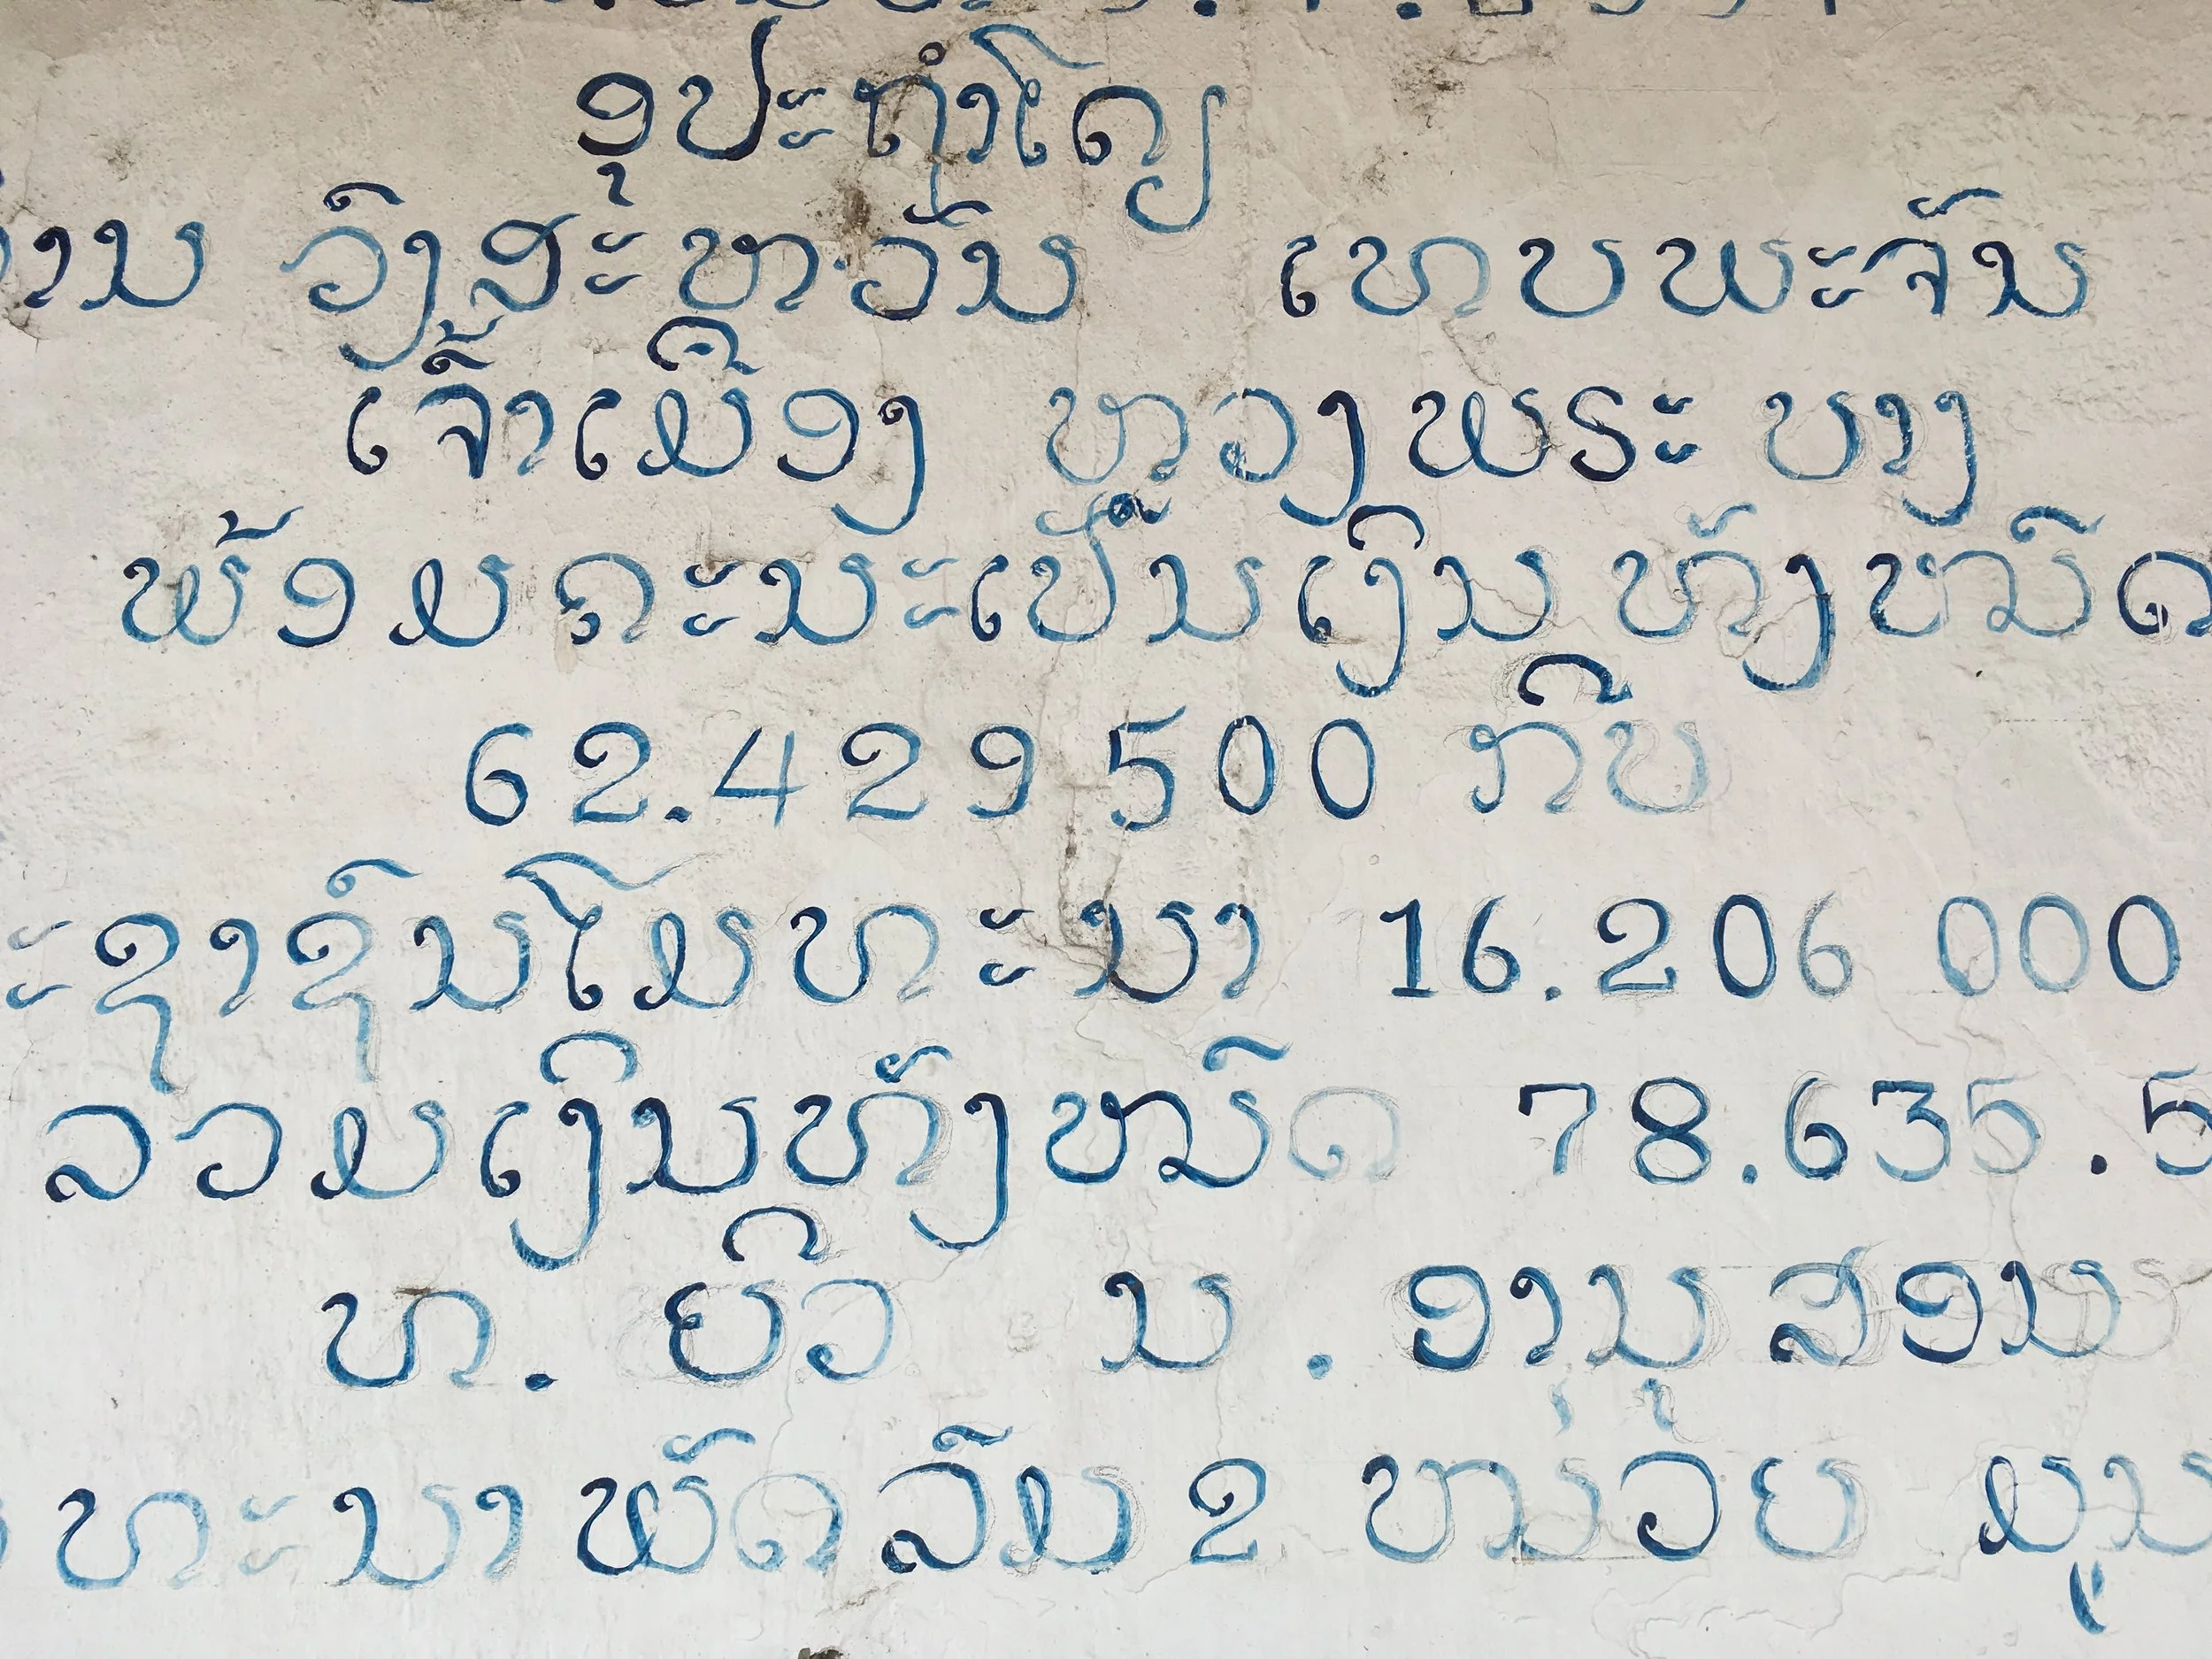 ອຸປະຖຳໂດຍ
ວົງສະຫວັນ ເທບພະຈັນ
ເຈົ້າເມືອງ ຫວງພຣະ ບາງ
ພ້ອມຄະນະເປັນເງິນທັງໝົດ
62.429 500 ກີບ
ະຊາຊົນໂມທະນາ 16.206 000
ລວມເງິນທັງໝົດ 78.635.5
ທ. ຍິວ ນ. ອານຸສອນ
ທະນາພັດລົມ 2 ໜ່ວຍ ມູນ